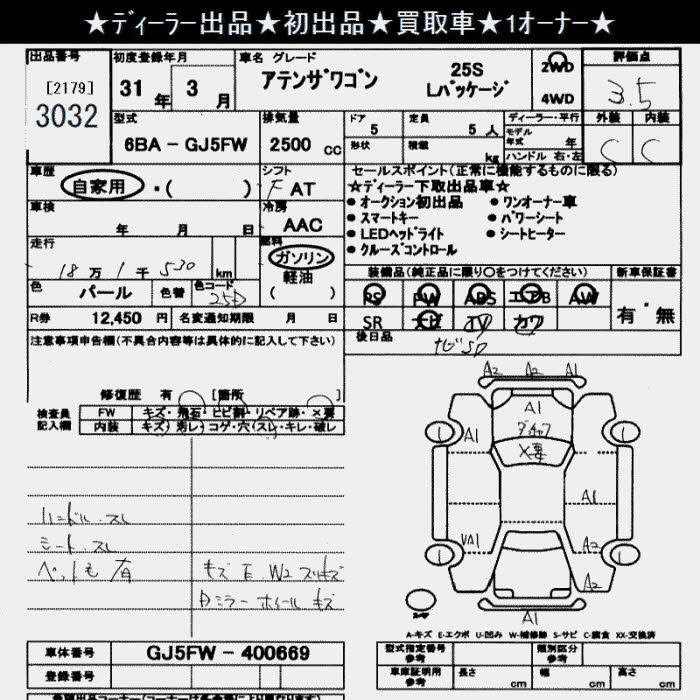 ★ディーラー出品★初出品★買取車★1オーナー★
出品番号
[2179]
3032
初度登録年月
31年 3月
車名 グレード
アテンザワゴン 25S Lパッケージ
2WD
4WD
評価点
3.5
型式
6BA - GJ5FW
排気量
2500 cc
ドア 5
定員 5人
形状
積載 kg
ディーラー・平行
モデル年式 年
ハンドル 右・左
外装 内装
C C
車歴
自家用 ・( )
シフト
F AT
セールスポイント(正常に機能するものに限る)
★ディーラー下取出品車★
● オークション初出品 ● ワンオーナー車
● スマートキー ● パワーシート
● LEDヘッドライト ● シートヒーター
● クルーズコントロール
車検
年 月 日
冷房
AAC
走行
18万1千530 km
燃料
ガソリン
軽油
( )
色
パール
色替
色コード
25D
装備品(純正品に限り○をつけてください)
PS PW ABS エアB AW
SR ナビ TV カワ
新車保証書
有・無
R券 12,450 円
名変通知期限 月 日
後日品
ナビSD
注意事項申告欄(不具合内容等は具体的に記入して下さい)
修復歴 有 [箇所 ]
検査員記入欄
FW キズ・飛石・ヒビ割・リペア跡・×要
内装 キズ・汚レ・コゲ・穴・スレ・キレ・破レ
ハンドル.スレ
シート.スレ
ペットも 有
キズ E W2 スリキズ
ミラー ホイール キズ
A2 A2 A1
A1
ダッシュ
×要
A1
A1
A2
A2
A1
A-キズ E-エクボ U-凹み W-補修跡 S-サビ C-腐食 XX-交換済
車体番号
GJ5FW - 400669
登録番号
型式指定番号参考
類別区分参考
車庫証明用参考
長さ cm
幅 cm
高さ cm